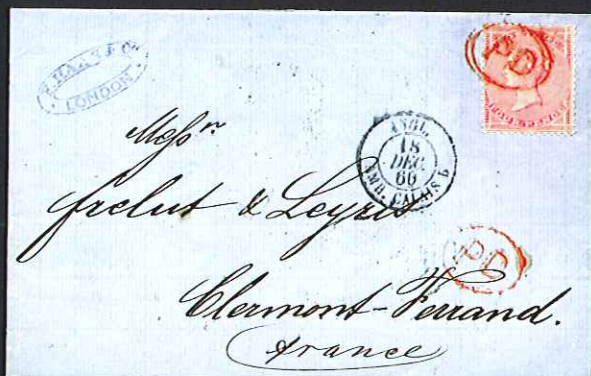 & Co
LONDON
PD
ANGL.
18
DEC.
60
AMB. CALAIS
Messrs
Frelut & Leyris
PD
Clermont-Ferrand.
France